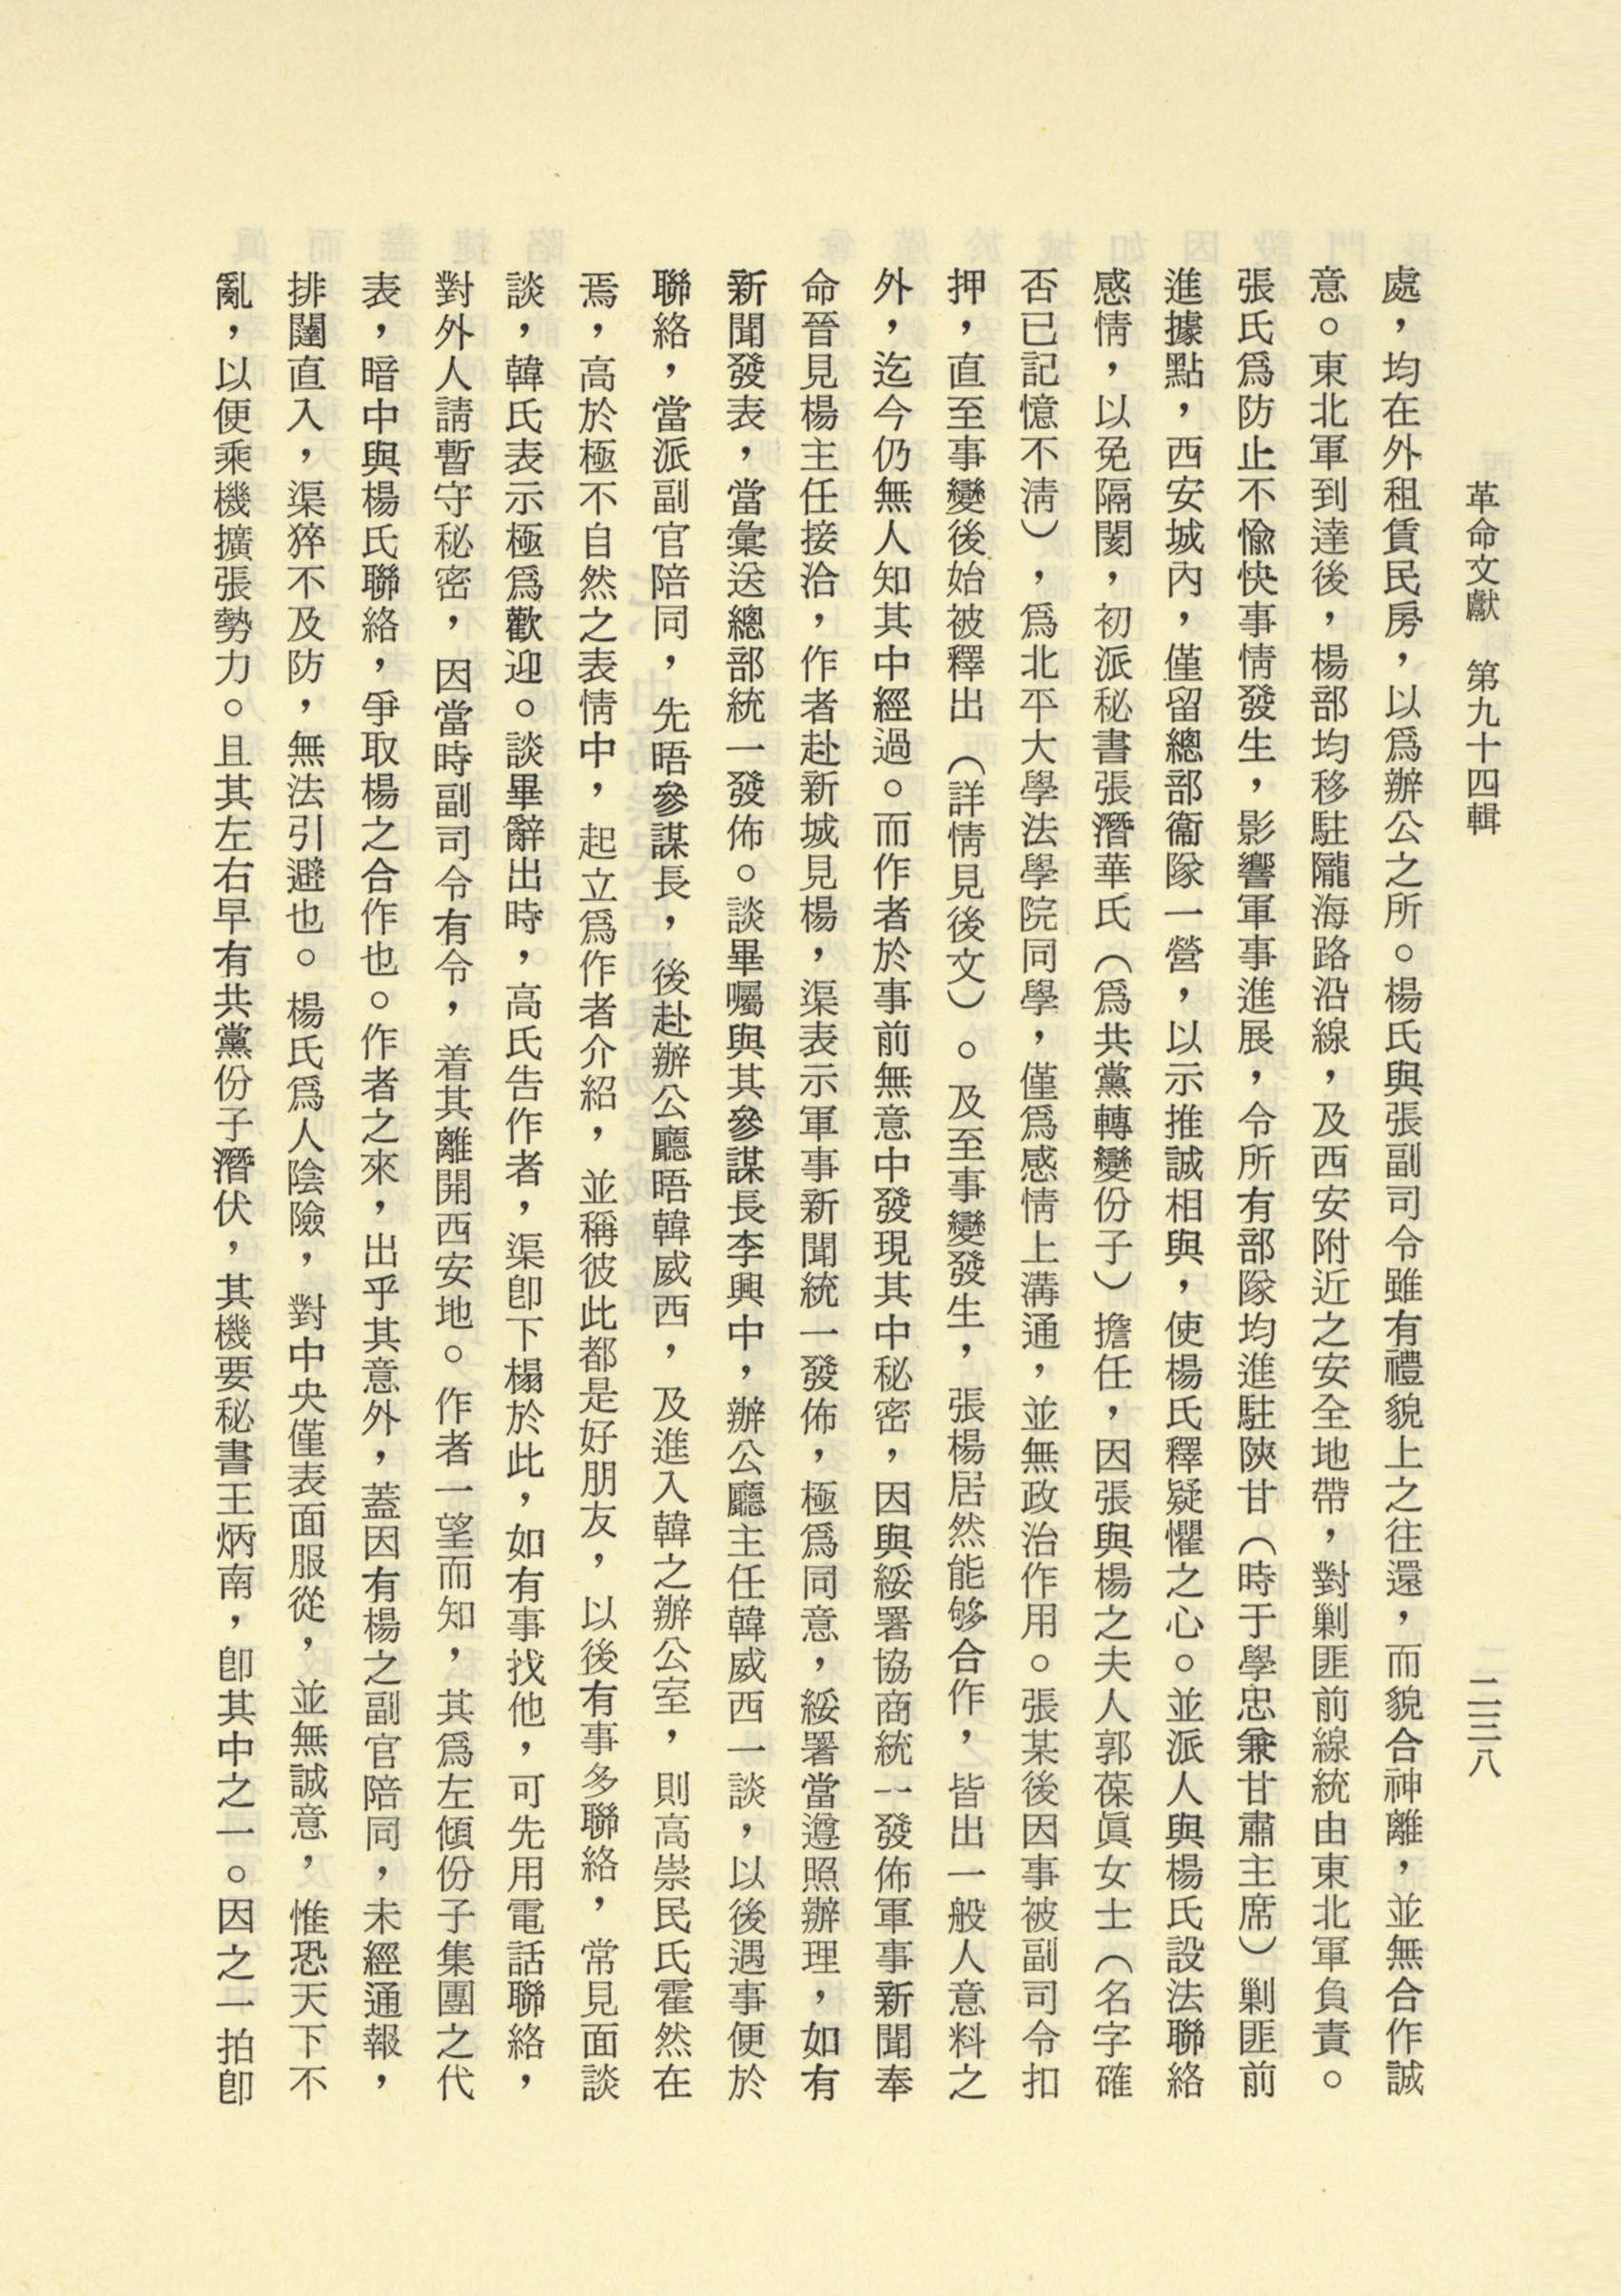 革命文獻　第九十四輯
二三八
處，均在外租賃民房，以爲辦公之所。楊氏與張副司令雖有禮貌上之往還，而貌合神離，並無合作誠
意。東北軍到達後，楊部均移駐隴海路沿線，及西安附近之安全地帶，對剿匪前線統由東北軍負責。
張氏爲防止不愉快事情發生，影響軍事進展，令所有部隊均進駐陝甘（時于學忠兼甘肅主席）剿匪前
進據點，西安城內，僅留總部衞隊一營，以示推誠相與，使楊氏釋疑懼之心。並派人與楊氏設法聯絡
感情，以免隔閡，初派秘書張潛華氏（爲共黨轉變份子）擔任，因張與楊之夫人郭葆眞女士（名字確
否已記憶不淸），爲北平大學法學院同學，僅爲感情上溝通，並無政治作用。張某後因事被副司令扣
押，直至事變後始被釋出（詳情見後文）。及至事變發生，張楊居然能够合作，皆出一般人意料之
外，迄今仍無人知其中經過。而作者於事前無意中發現其中秘密，因與綏署協商統一發佈軍事新聞奉
命晉見楊主任接洽，作者赴新城見楊，渠表示軍事新聞統一發佈，極爲同意，綏署當遵照辦理，如有
新聞發表，當彙送總部統一發佈。談畢囑與其參謀長李興中，辦公廳主任韓威西一談，以後遇事便於
聯絡，當派副官陪同，先晤參謀長，後赴辦公廳晤韓威西，及進入韓之辦公室，則高崇民氏霍然在
焉，高於極不自然之表情中，起立爲作者介紹，並稱彼此都是好朋友，以後有事多聯絡，常見面談
談，韓氏表示極爲歡迎。談畢辭出時，高氏告作者，渠卽下榻於此，如有事找他，可先用電話聯絡，
對外人請暫守秘密，因當時副司令有令，着其離開西安地。作者一望而知，其爲左傾份子集團之代
表，暗中與楊氏聯絡，爭取楊之合作也。作者之來，出乎其意外，蓋因有楊之副官陪同，未經通報，
排闥直入，渠猝不及防，無法引避也。楊氏爲人陰險，對中央僅表面服從，並無誠意，惟恐天下不
亂，以便乘機擴張勢力。且其左右早有共黨份子潛伏，其機要秘書王炳南，卽其中之一。因之一拍卽